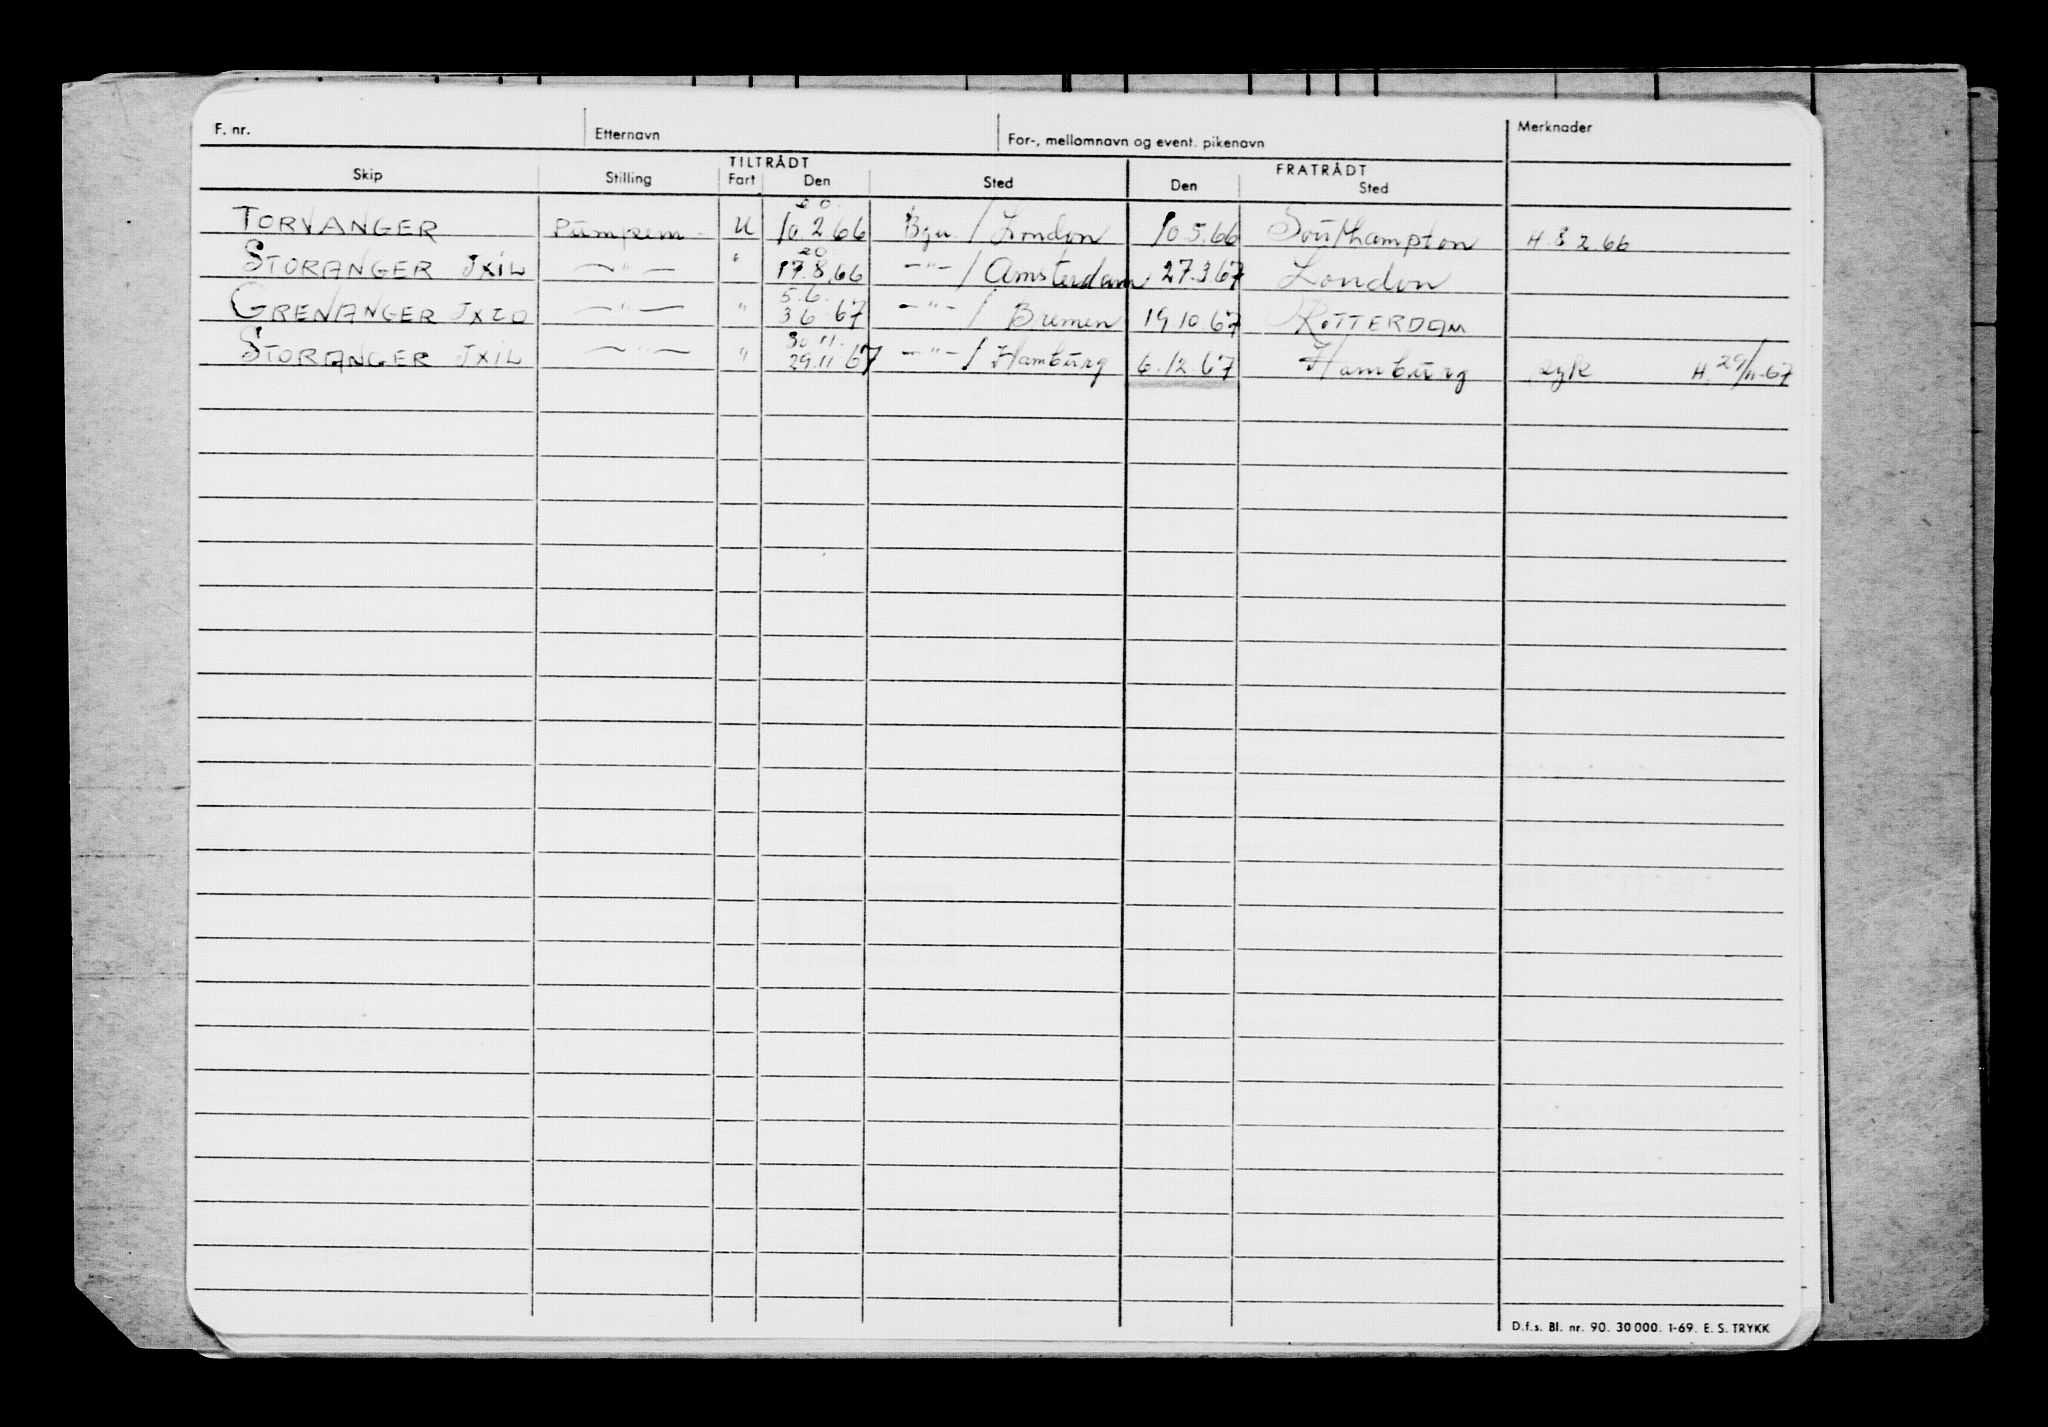 F. nr. Etternavn For-, mellomnavn og event. pikenavn Merknader
TILTRÅDT FRATRÅDT
Skip Stilling Fart Den Sted Den Sted
20.
TORVANGER Pumpem. U 10.2.66 Bgn. / London 10.5.66 Southampton H 8 2 66
20
STORANGER JXIL —"— " 17.8.66 —"— / Amsterdam 27.3.67 London
5.6.
GRENANGER JXZO —"— " 3.6 67 —"— / Bremen 19.10.67 ROTTERDAM
30.11.
STORANGER JXIL —"— " 29.11.67 —"— / Hamburg 6.12.67 Hamburg syk H. 29/11-67
D.f.s. Bl. nr. 90. 30 000. 1-69. E. S. TRYKK